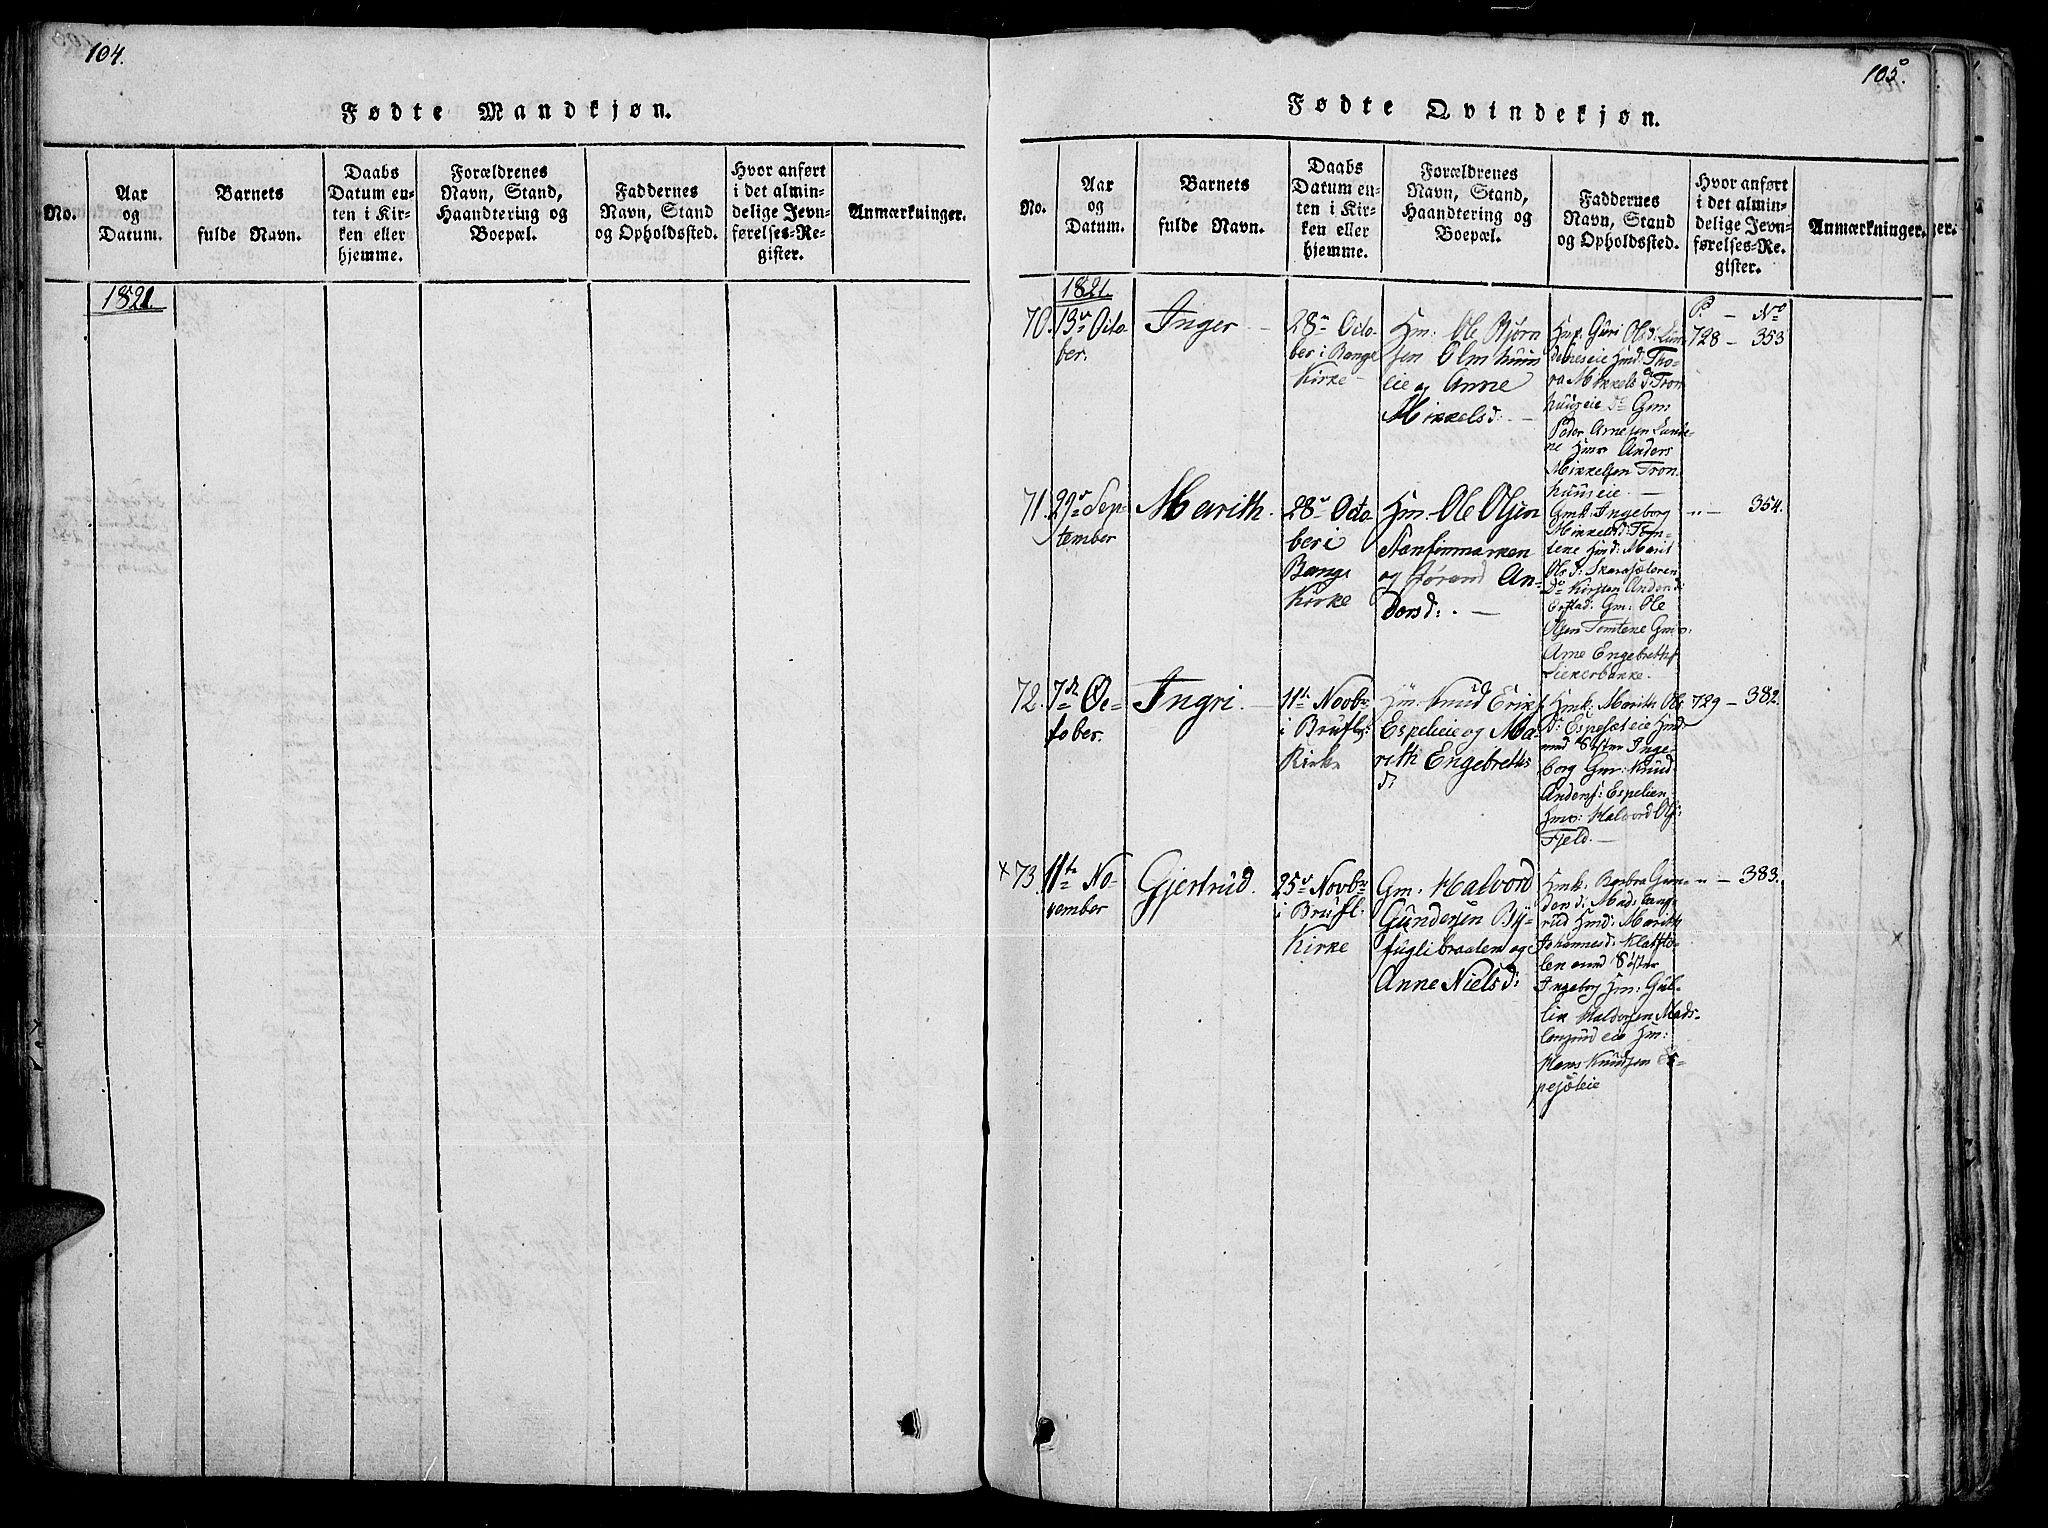 104.
Fødte Mandkjøn.
No.
Aar
og
Datum.
Barnets
fulde Navn.
Daabs
Datum en-
ten i Kir-
ken eller
hjemme.
Forældrenes
Navn, Stand,
Haandtering og
Boepæl.
Faddernes
Navn, Stand
og Opholdssted.
Hvor anført
i det almin-
delige Jevn-
førelses-Re-
gister.
Anmærkninger.
1821.
105.
Fødte Qvindekjøn.
No.
Aar
og
Datum.
Barnets
fulde Navn.
Daabs
Datum en-
ten i Kir-
ken eller
hjemme.
Forældrenes
Navn, Stand,
Haandtering og
Boepæl.
Faddernes
Navn, Stand
og Opholdssted.
Hvor anført
i det almin-
delige Jevn-
førelses-Re-
gister.
Anmærkninger.
1821.
70.
13 Octo-
ber.
Inger
28 Octo-
ber i Bange
Kirke
Hm: Ole Bjørn
sen Olmhuus
eie og Anne
Mikkelsd:
Hmk: Guri Olsd: Lun
deneseie Hmd: Tho-
ra Mikkelsd: Tron
huuseie Do Gm:
Peder Arnesen Lunde-
ne Hms: Anders
Mikkelsen Tron
huuseie.
P. No
728 - 353
71.
29 Sep-
tember
Marith.
28 Octo-
ber i
Bange
Kirke
Hm: Ole Olsen
Stenfinmarken
og Jørand An-
dersd:
Gmk: Ingeborg
Mikkelsd: Tom-
tene Hmd: Marit
Ols d: Skaraseteren
Do Kirsten Anders d:
Erstad. Gm: Ole
Olsen Tomtene Gms:
Arne Engebrethsf
Liekerbakke.
" - 354.
72.
7de Oc-
tober.
Ingri.
11te Novbr
i Brufl:
Kirke
Hm: Knud Eriks
Espelieie og Ma-
rith Engebreths
d:
Hmk: Marith Ols
D: Espesæteie Hmd:
med Søster Inge-
borg Gm: Knud
Anders: Espelien
Hms: Halvord Ols:
Fjeld.
729 - 382.
x 73.
11te No-
vember
Gjertrud.
25 Novbr
i Brufl:
Kirke
Gm: Halvord
Gundersen By-
fuglibraaten og
Anne Nielsd:
Hmk: Barbra Gun-
ders d: Madslang-
rud Hmd: Marith
Johannesd: Klatsto-
len med Søster
Ingeborg Hm: Gul-
lik Haldorsen Mads-
langrud eie Hm:
Hans Knudsen Es-
pesæteie
" - 383.
x